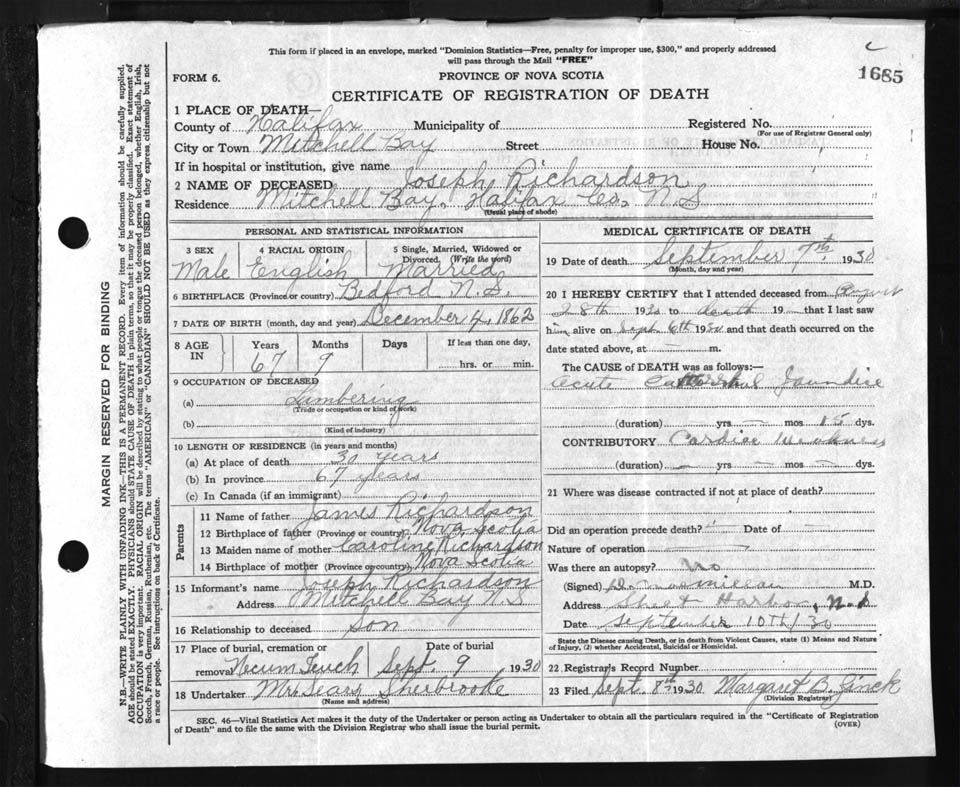 This form if placed in an envelope, marked "Dominion Statistics—Free, penalty for improper use, $300," and properly addressed
will pass through the Mail "FREE"
1685
FORM 6.
PROVINCE OF NOVA SCOTIA
CERTIFICATE OF REGISTRATION OF DEATH
1 PLACE OF DEATH—
County of Halifax Municipality of Registered No.
(For use of Registrar General only)
City or Town Mitchell Bay Street House No.
If in hospital or institution, give name
2 NAME OF DECEASED Joseph Richardson
Residence Mitchell Bay, Halifax Co, N.S
(Usual place of abode)
PERSONAL AND STATISTICAL INFORMATION
3 SEX 4 RACIAL ORIGIN 5 Single, Married, Widowed or Divorced. (Write the word)
Male English Married
6 BIRTHPLACE (Province or country) Bedford N.S.
7 DATE OF BIRTH (month, day and year) December 4, 1862
8 AGE IN Years Months Days If less than one day,
67 9 hrs. or min.
9 OCCUPATION OF DECEASED
(a) Lumbering
(Trade or occupation or kind of work)
(b)
(Kind of industry)
10 LENGTH OF RESIDENCE (in years and months)
(a) At place of death 30 years
(b) In province 67 years
(c) In Canada (if an immigrant)
Parents
11 Name of father James Richardson
12 Birthplace of father (Province or country) Nova Scotia
13 Maiden name of mother Caroline Richardson
14 Birthplace of mother (Province or country) Nova Scotia
15 Informant's name Joseph Richardson
Address Mitchell Bay N S
16 Relationship to deceased Son
17 Place of burial, cremation or removal Date of burial
Necum Teuch Sept. 9 1930
18 Undertaker Mr. Sherbrooke
(Name and address)
MEDICAL CERTIFICATE OF DEATH
19 Date of death September 7th, 1930
(Month, day and year)
20 I HEREBY CERTIFY that I attended deceased from August
28th 1930 to death 19— that I last saw
him alive on Sept 6th 1930 and that death occurred on the
date stated above, at — m.
The CAUSE of DEATH was as follows:—
Acute Catarrhal Jaundice
(duration) — yrs — mos 15 dys.
CONTRIBUTORY Cardiac Weakness
(duration) — yrs — mos — dys.
21 Where was disease contracted if not at place of death?
Did an operation precede death? — Date of —
Nature of operation —
Was there an autopsy? No
(Signed) M.D.
Address Sheet Harbor, N.S
Date September 10th/30
State the Disease causing Death, or in death from Violent Causes, state (1) Means and Nature
of Injury, (2) whether Accidental, Suicidal or Homicidal.
22 Registrar's Record Number
23 Filed Sept 8th 1930 Margaret B.
(Division Registrar)
SEC. 46—Vital Statistics Act makes it the duty of the Undertaker or person acting as Undertaker to obtain all the particulars required in the "Certificate of Registration
of Death" and to file the same with the Division Registrar who shall issue the burial permit.
(OVER)
MARGIN RESERVED FOR BINDING
N.B.—WRITE PLAINLY WITH UNFADING INK—THIS IS A PERMANENT RECORD. Every item of information should be carefully supplied.
AGE should be stated EXACTLY. PHYSICIANS should STATE CAUSE OF DEATH in plain terms, so that it may be properly classified. Exact statement of
OCCUPATION is very important. RACIAL ORIGIN will be described by stating to what people or tongue the deceased person belonged, whether English, Irish,
Scotch, French, German, Russian, Ruthenian, etc. The terms "AMERICAN" or "CANADIAN" SHOULD NOT BE USED as they express citizenship but not
a race or people. See instructions on back of Certificate.